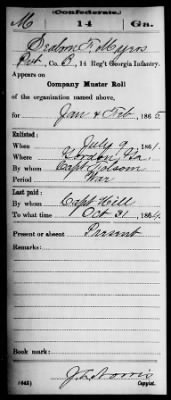 Confederate.
M 14 Ga.
F. Myers
Pvt, Co. B, 14 Reg't Georgia Infantry.
Appears on
Company Muster Roll
of the organization named above,
for Jan & Feb, 1865
Enlisted:
When July 9, 1861.
Where Gordon Ga.
By whom Capt Folsom
Period War
Last paid:
By whom Capt Hill
To what time Oct 31, 1864.
Present or absent Present
Remarks:
Book mark:
(642) J L Norris
Copyist.